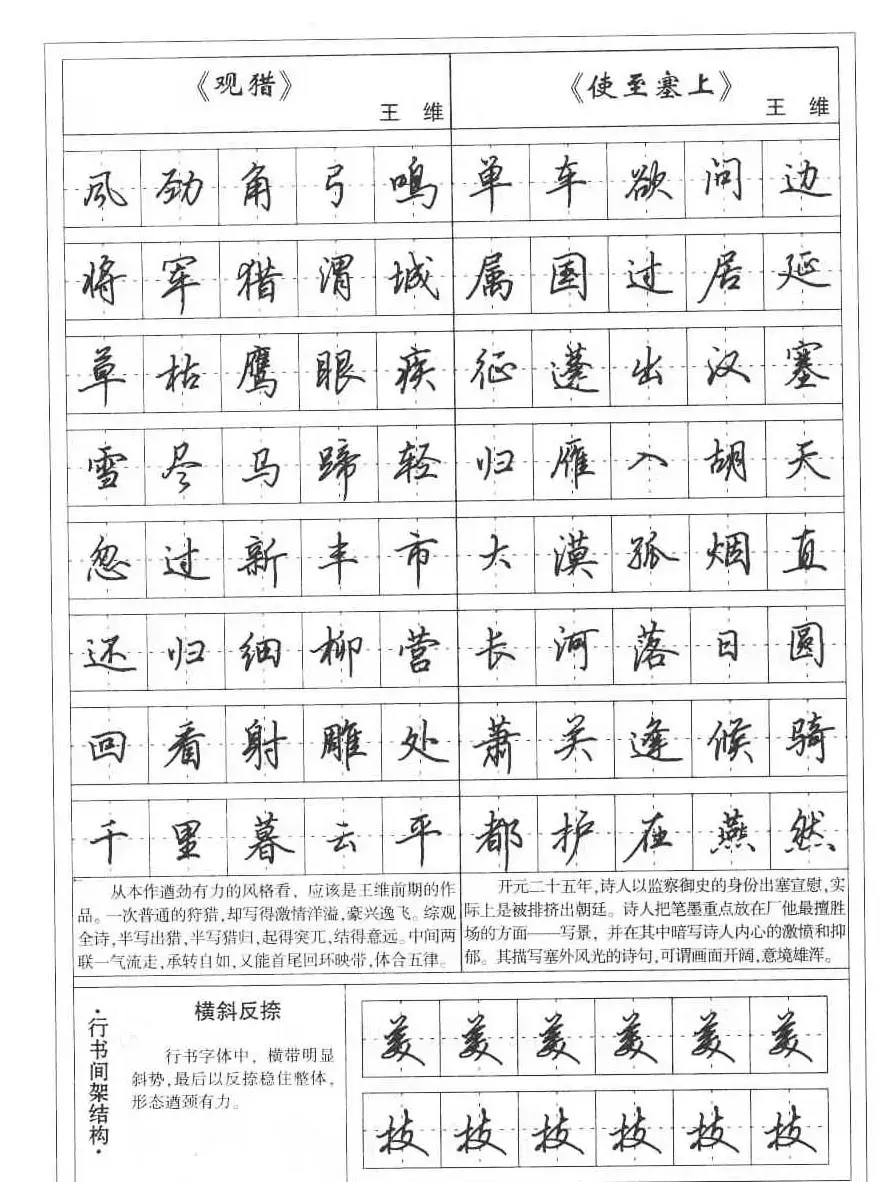 《观猎》
王 维
風劲角弓鸣
将军猎渭城
草枯鹰眼疾
雪尽马蹄轻
忽过新丰市
还归细柳营
回看射雕处
千里暮云平
从本作遒劲有力的风格看，应该是王维前期的作
品。一次普通的狩猎，却写得激情洋溢，豪兴逸飞。综观
全诗，半写出猎，半写猎归，起得突兀，结得意远。中间两
联一气流走，承转自如，又能首尾回环映带，体合五律。
《使至塞上》
王 维
单车欲问边
属国过居延
征蓬出汉塞
归雁入胡天
大漠孤烟直
长河落日圆
萧关逢候骑
都护在燕然
开元二十五年，诗人以监察御史的身份出塞宣慰，实
际上是被排挤出朝廷。诗人把笔墨重点放在厂他最擅胜
场的方面——写景，并在其中暗写诗人内心的激愤和抑
郁。其描写塞外风光的诗句，可谓画面开阔，意境雄浑。
·行书间架结构·
横斜反捺
行书字体中，横带明显
斜势，最后以反捺稳住整体，
形态遒颈有力。
美美美美美美
技技技技技技